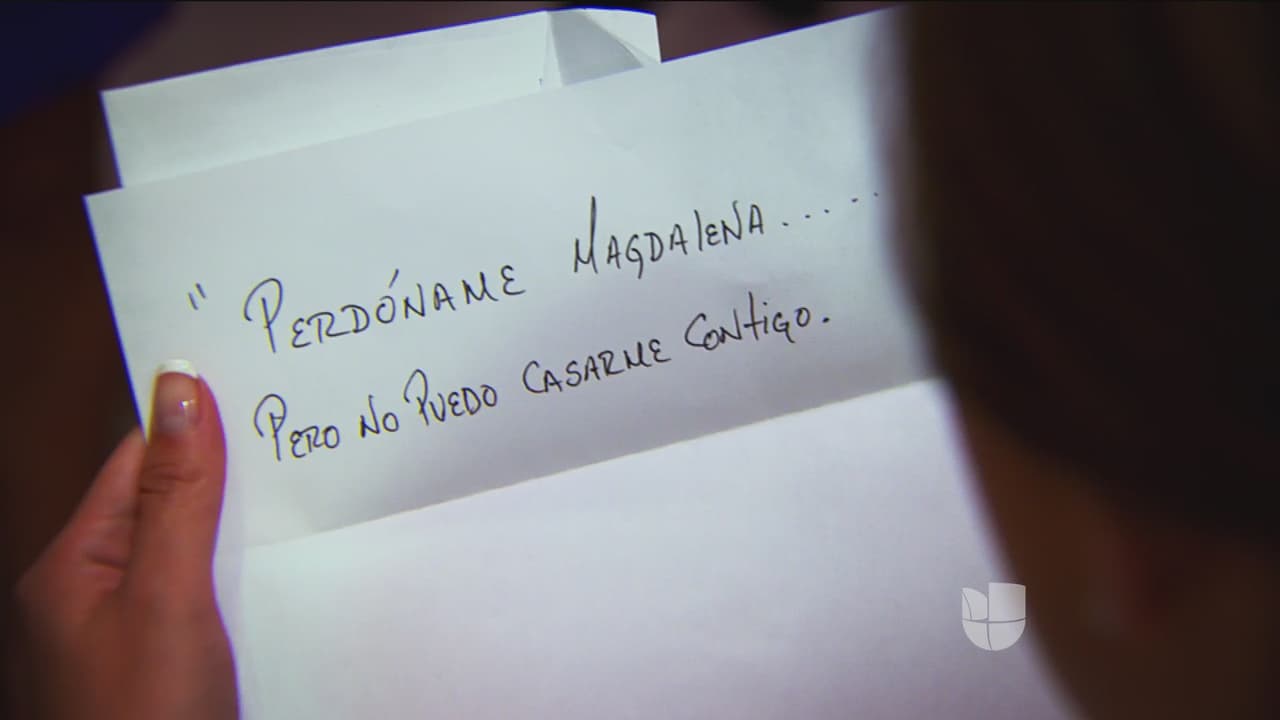 " PERDÓNAME MAGDALENA.....
PERO NO PUEDO CASARME CONTIGO.